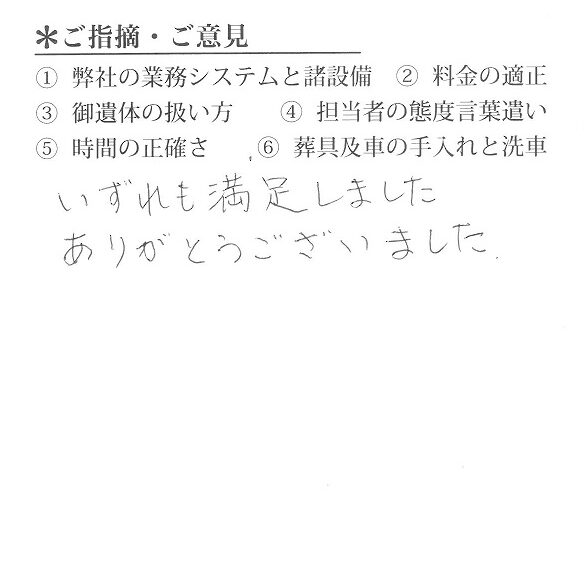 ＊ご指摘・ご意見
① 弊社の業務システムと諸設備　② 料金の適正
③ 御遺体の扱い方　④ 担当者の態度言葉遣い
⑤ 時間の正確さ　⑥ 葬具及車の手入れと洗車
いずれも満足しました
ありがとうございました.